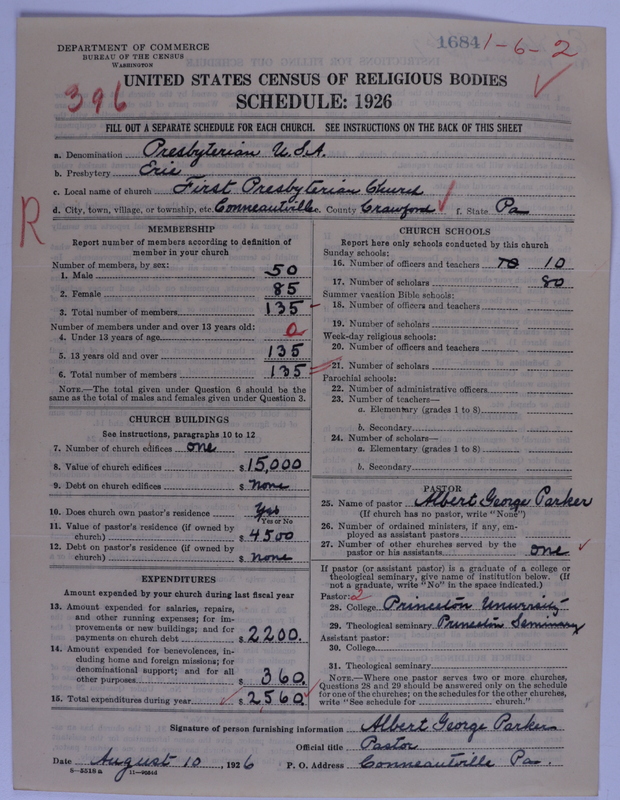 DEPARTMENT OF COMMERCE
BUREAU OF THE CENSUS
WASHINGTON
1684 1-6-2
396
UNITED STATES CENSUS OF RELIGIOUS BODIES
SCHEDULE: 1926
FILL OUT A SEPARATE SCHEDULE FOR EACH CHURCH. SEE INSTRUCTIONS ON THE BACK OF THIS SHEET
a. Denomination Presbyterian U.S.A.
b. Presbytery Erie
c. Local name of church First Presbyterian Church
d. City, town, village, or township, etc. Conneautville e. County Crawford f. State Pa
R
MEMBERSHIP
Report number of members according to definition of
member in your church
Number of members, by sex:
1. Male 50
2. Female 85
3. Total number of members 135
Number of members under and over 13 years old:
4. Under 13 years of age 0
5. 13 years old and over 135
6. Total number of members 135
NOTE.—The total given under Question 6 should be the
same as the total of males and females given under Question 3.
CHURCH BUILDINGS
See instructions, paragraphs 10 to 12
7. Number of church edifices one
8. Value of church edifices $ 15,000
9. Debt on church edifices $ None
10. Does church own pastor's residence Yes
Yes or No
11. Value of pastor's residence (if owned by
church) $ 4500
12. Debt on pastor's residence (if owned by
church) $ None
EXPENDITURES
Amount expended by your church during last fiscal year
13. Amount expended for salaries, repairs,
and other running expenses; for im-
provements or new buildings; and for
payments on church debt $ 2200.
14. Amount expended for benevolences, in-
cluding home and foreign missions; for
denominational support; and for all
other purposes $ 360.
15. Total expenditures during year $ 2560.
CHURCH SCHOOLS
Report here only schools conducted by this church
Sunday schools:
16. Number of officers and teachers 10
17. Number of scholars 80
Summer vacation Bible schools:
18. Number of officers and teachers
19. Number of scholars
Week-day religious schools:
20. Number of officers and teachers
21. Number of scholars
Parochial schools:
22. Number of administrative officers
23. Number of teachers—
a. Elementary (grades 1 to 8)
b. Secondary
24. Number of scholars—
a. Elementary (grades 1 to 8)
b. Secondary
PASTOR
25. Name of pastor Albert George Parker
(If church has no pastor, write "None")
26. Number of ordained ministers, if any, em-
ployed as assistant pastors
27. Number of other churches served by the
pastor or his assistants one
If pastor (or assistant pastor) is a graduate of a college or
theological seminary, give name of institution below. (If
not a graduate, write "No" in the space indicated.)
Pastor: 2
28. College Princeton University
29. Theological seminary Princeton Seminary
Assistant pastor:
30. College
31. Theological seminary
NOTE.—Where one pastor serves two or more churches,
Questions 28 and 29 should be answered only on the schedule
for one of the churches; on the schedules for the other churches,
write "See schedule for church."
Signature of person furnishing information Albert George Parker
Official title Pastor
Date August 10, 1926 P. O. Address Conneautville Pa.
8—5518a